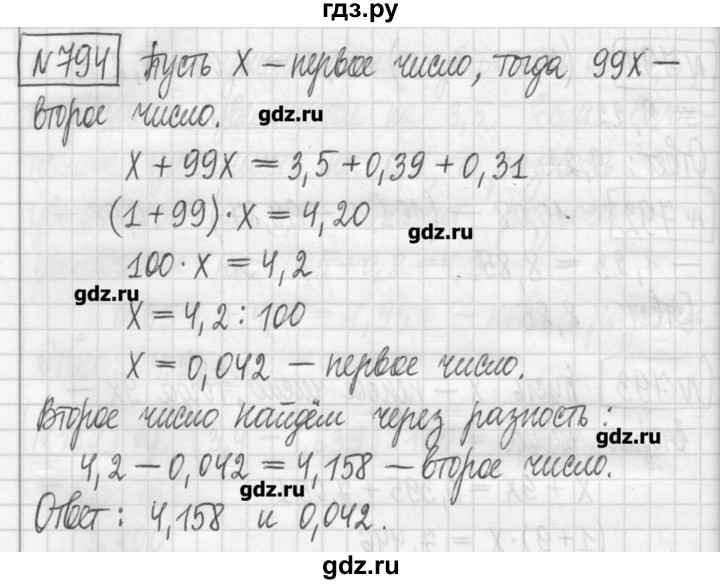 гдз.ру
№794 Пусть x – первое число, тогда 99x –
второе число.
gdz.ru
x + 99x = 3,5 + 0,39 + 0,31
(1 + 99) · x = 4,20
gdz.ru
100 · x = 4,2
gdz.ru
x = 4,2 : 100
x = 0,042 – первое число.
Второе число найдём через разность:
gdz.ru
4,2 – 0,042 = 4,158 – второе число.
gdz.ru
Ответ: 4,158 и 0,042.
gdz.ru